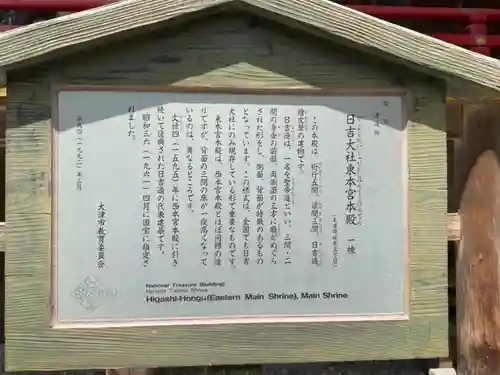 国宝
建造物
日吉大社東本宮本殿 一棟
(大津市坂本五丁目)
この本殿は、桁行五間、梁間三間、日吉造、
檜皮葺の建物です。
日吉造は、一名を聖帝造といい、三間・二
間の身舎の前面、両側面の三方に廂がめぐら
された形をし、側面、背面が特徴のあるもの
となっています。この様式は、全国でも日吉
大社にのみ現存している形で重要なものです。
東本宮本殿は、西本宮本殿とほぼ同様の造
りですが、背面の三間の床が一段高くなって
いるのは、異なるところです。
文禄四(一五九五)年に西本宮本殿に引き
続いて復興された日吉造の代表建築です。
昭和三六(一九六一)四月に国宝に指定さ
れました。
平成四(一九九二)年三月
大津市教育委員会
National Treasure (Building)
Hiyoshi Taisha Shrine
Higashi-Hongu (Eastern Main Shrine), Main Shrine